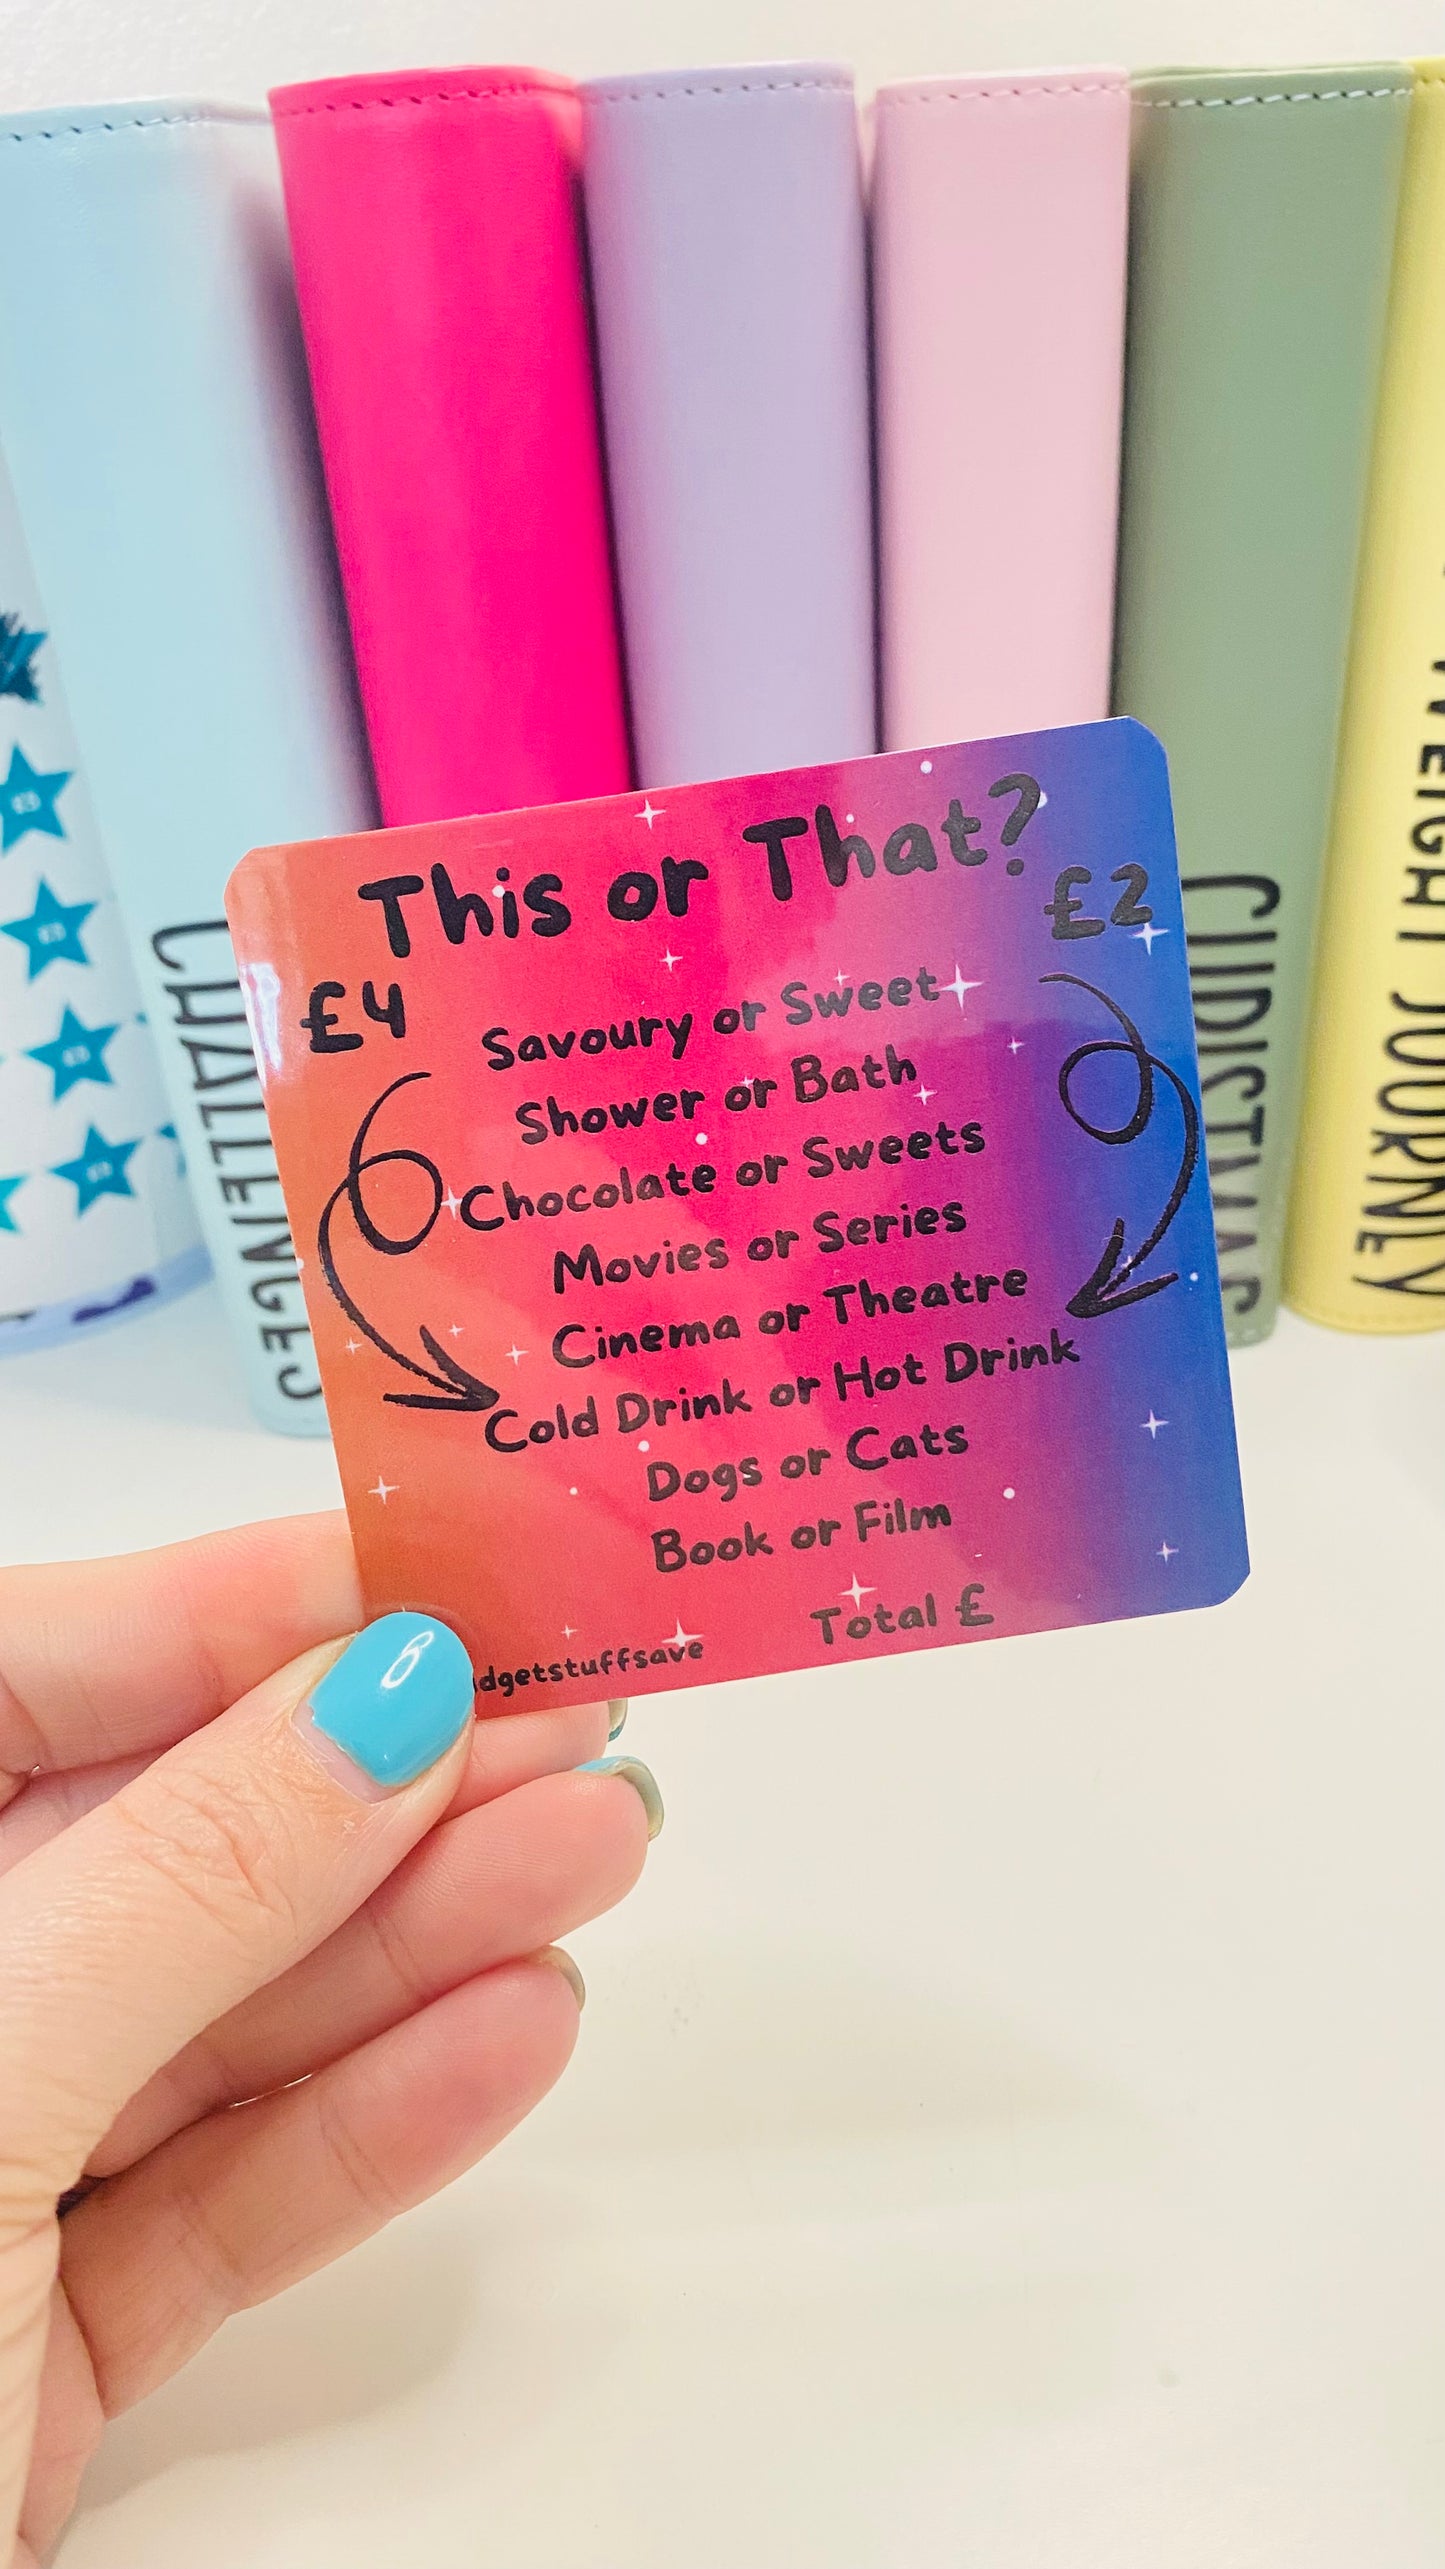 This or That?
£4
£2
Savoury or Sweet
Shower or Bath
Chocolate or Sweets
Movies or Series
Cinema or Theatre
Cold Drink or Hot Drink
Dogs or Cats
Book or Film
Total £
dgetstuffsave
CHALLENGES
CHRISTMAS
WEIGHT JOURNEY